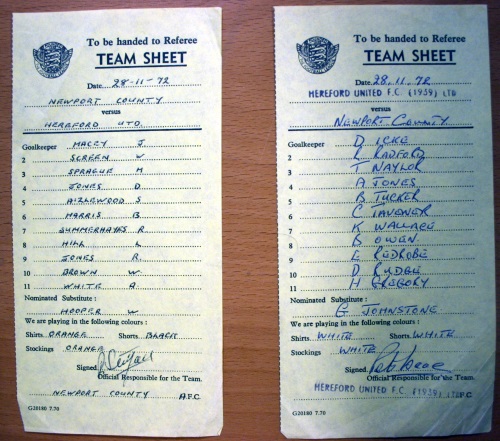 To be handed to Referee
TEAM SHEET
Date 28-11-72
NEWPORT COUNTY
versus
HEREFORD UTD.
Goalkeeper MACEY J.
2 SCREEN W
3 SPRAGUE M
4 JONES D
5 AIZLEWOOD S
6 HARRIS B
7 SUMMERHAYES R
8 HILL L
9 JONES R.
10 BROWN W.
11 WHITE A
Nominated Substitute :
HOOPER W
We are playing in the following colours :
Shirts ORANGE Shorts BLACK
Stockings ORANGE
Signed
Official Responsible for the Team.
NEWPORT COUNTY A.F.C.
G20180 7.70
To be handed to Referee
TEAM SHEET
Date 28.11.72
HEREFORD UNITED F.C. (1939) LTD
versus
NEWPORT COUNTY
Goalkeeper D ICKE
2 R RADFORD
3 T NAYLOR
4 A JONES
5 B TUCKER
6 C TAVENER
7 K WALLACE
8 B OWEN
9 E REDROBE
10 D RUDGE
11 H GREGORY
Nominated Substitute :
G JOHNSTONE
We are playing in the following colours :
Shirts WHITE Shorts WHITE
Stockings WHITE
Signed
Official Responsible for the Team.
HEREFORD UNITED F.C. (1939) LTD F.C.
G20180 7.70